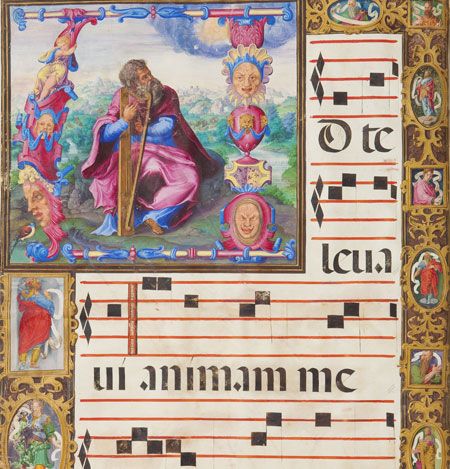 D te
leua
ui animam me